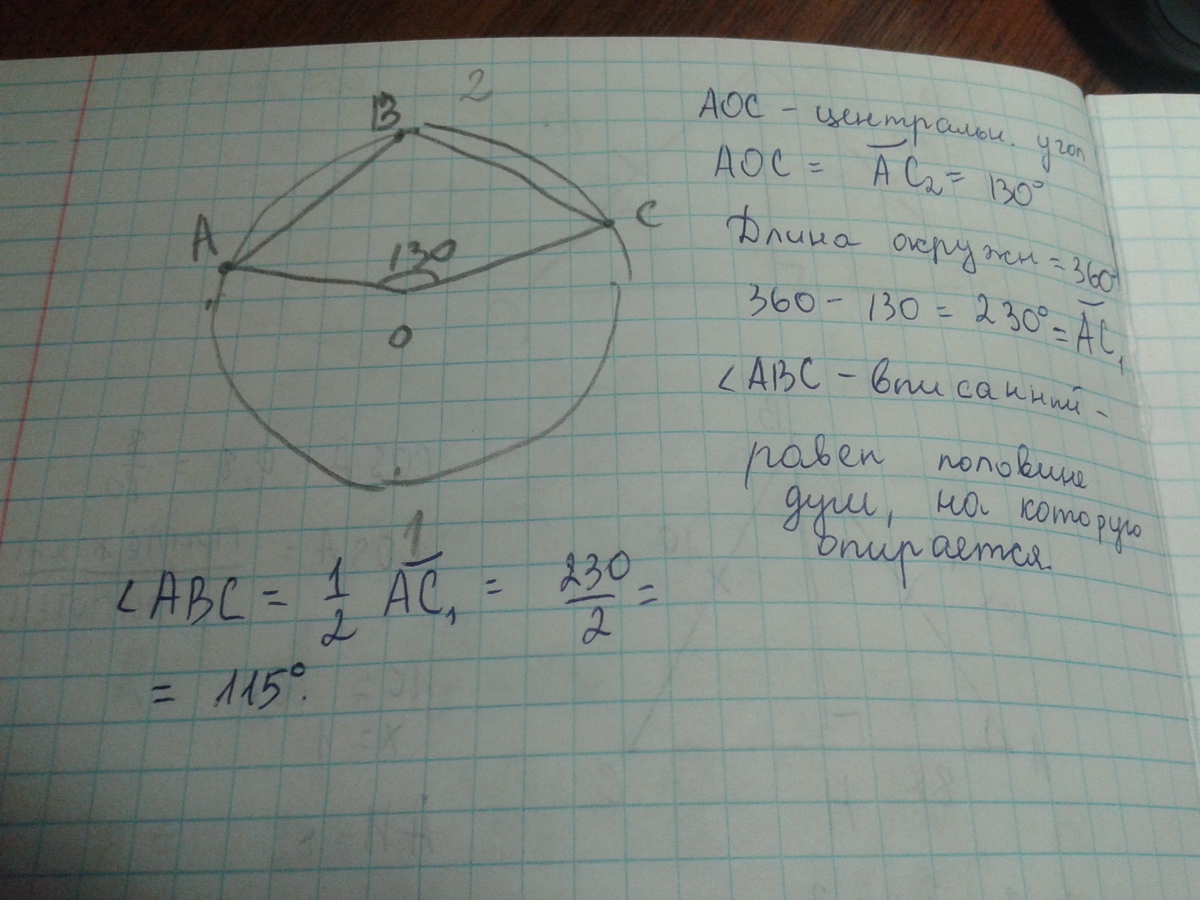 B 2
A
C
130
O
1
AOC - центральн. угол
AOC = AC₂ = 130°
Длина окружн = 360°
360 - 130 = 230° = AC₁
<ABC - вписанный -
равен половине
дуги, на которую
опирается.
<ABC = 1/2 AC₁ = 230/2 =
= 115°.